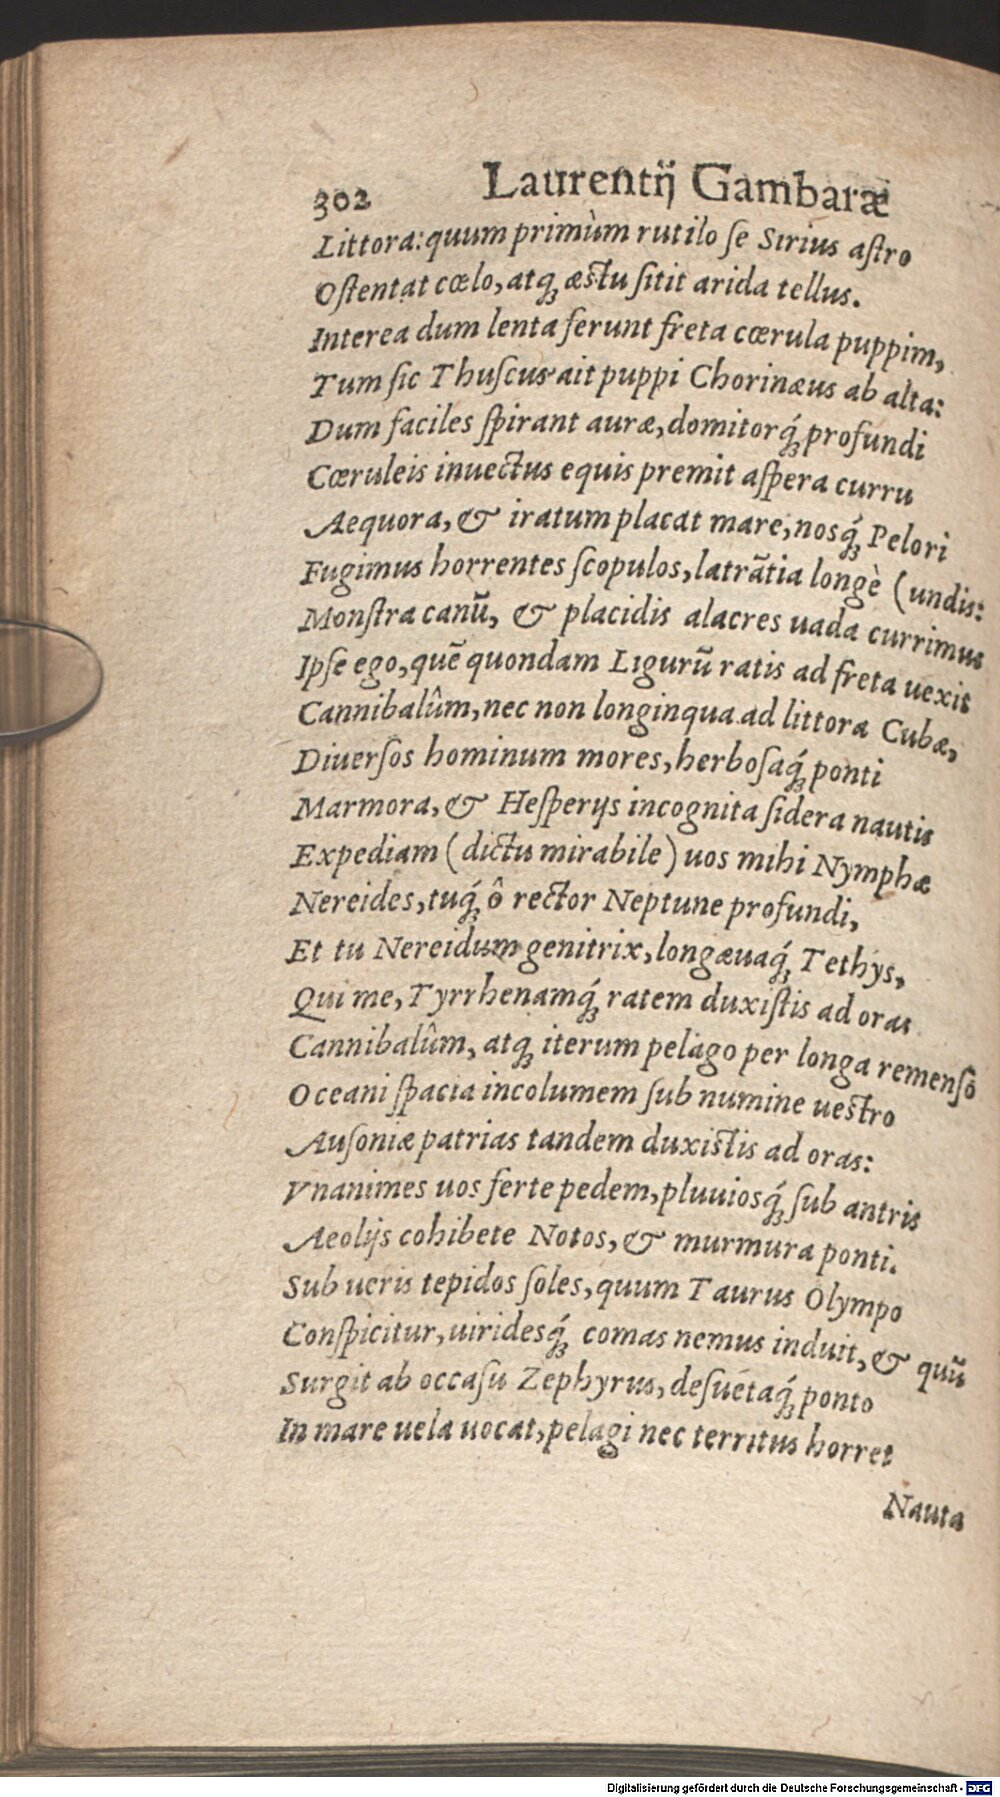 302 Laurentij Gambaræ
Littora: quum primùm rutilo se Sirius astro
Ostentat cœlo, atq; æstu sitit arida tellus.
Interea dum lenta ferunt freta cœrula puppim,
Tum sic Thuscus ait puppi Chorinæus ab alta:
Dum faciles spirant auræ, domitorq́; profundi
Cœruleis inuectus equis premit aspera curru
Aequora, & iratum placat mare, nosq́; Pelori
Fugimus horrentes scopulos, latrãtia longè (undis:
Monstra canũ, & placidis alacres uada currimus
Ipse ego, quẽ quondam Ligurũ ratis ad freta uexit
Cannibalûm, nec non longinqua ad littora Cubæ,
Diuersos hominum mores, herbosaq́; ponti
Marmora, & Hesperijs incognita sidera nautis
Expediam (dictu mirabile) uos mihi Nymphæ
Nereides, tuq́; ô rector Neptune profundi,
Et tu Nereidum genitrix, longæuaq́; Tethys,
Qui me, Tyrrhenamq́; ratem duxistis ad oras
Cannibalûm, atq; iterum pelago per longa remensõ
Oceani spacia incolumem sub numine uestro
Ausoniæ patrias tandem duxistis ad oras:
Vnanimes uos ferte pedem, pluuiosq́; sub antris
Aeolijs cohibete Notos, & murmura ponti.
Sub ueris tepidos soles, quum Taurus Olympo
Conspicitur, uiridesq́; comas nemus induit, & quũ
Surgit ab occasu Zephyrus, desuetaq́; ponto
In mare uela uocat, pelagi nec territus horret
Nauta
Digitalisierung gefördert durch die Deutsche Forschungsgemeinschaft - DFG